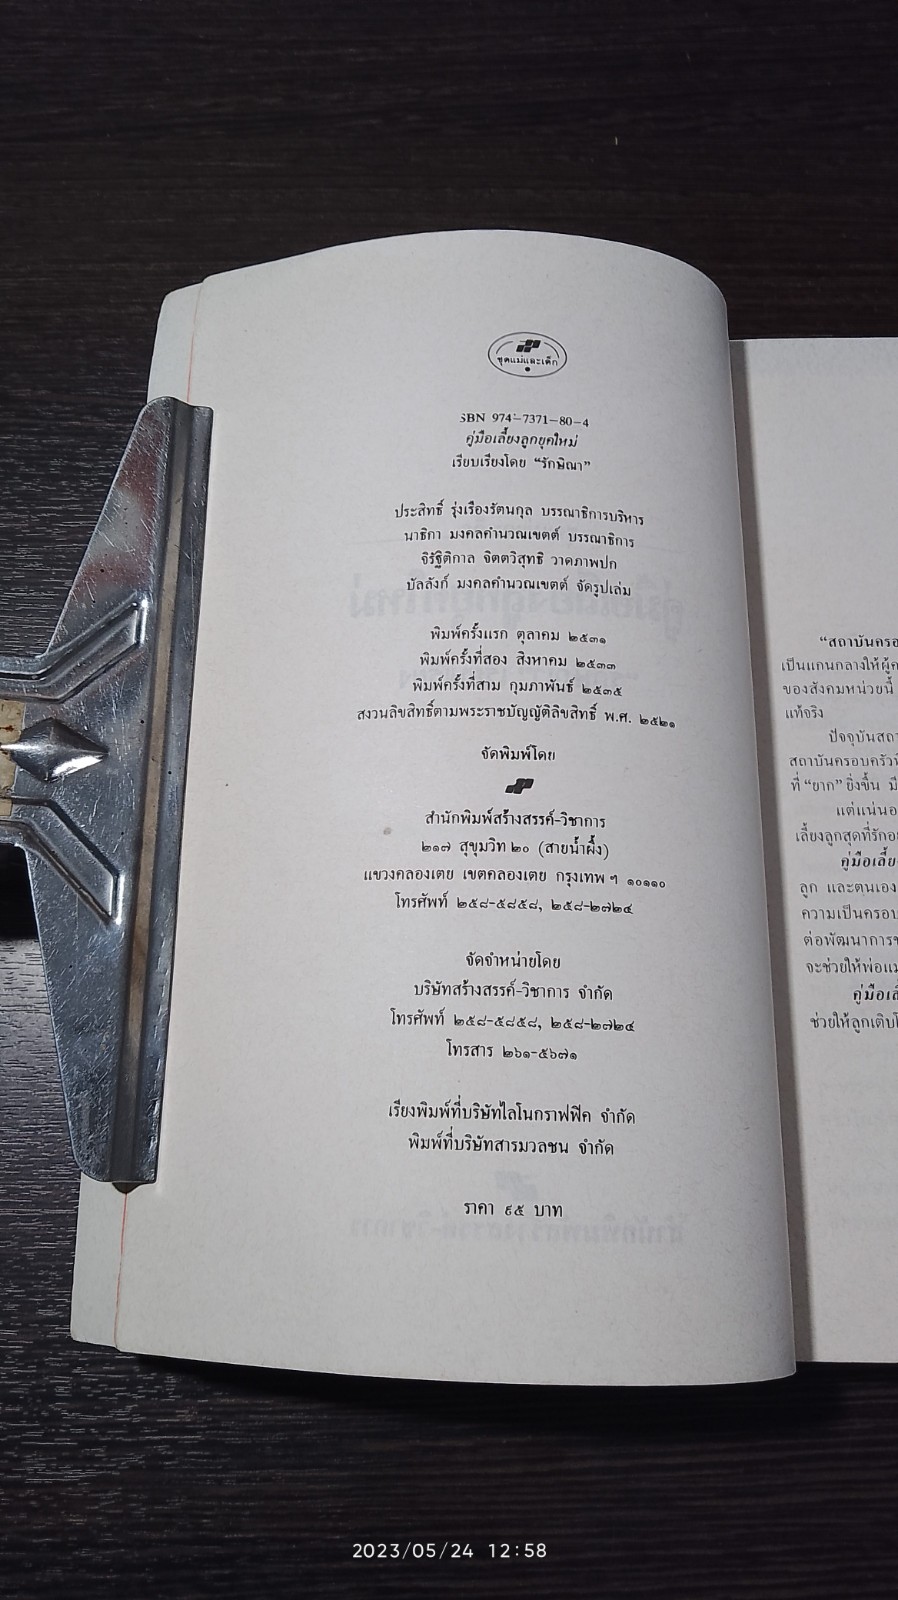 ชุดแม่และเด็ก
SBN 974-7371-80-4
คู่มือเลี้ยงลูกยุคใหม่
เรียบเรียงโดย "รักษิณา"
ประสิทธิ์ รุ่งเรืองรัตนกุล บรรณาธิการบริหาร
นาธิกา มงคลคำนวณเขตต์ บรรณาธิการ
จิรัฐิติกาล จิตตวิสุทธิ วาดภาพปก
บัลลังก์ มงคลคำนวณเขตต์ จัดรูปเล่ม
พิมพ์ครั้งแรก ตุลาคม ๒๕๓๑
พิมพ์ครั้งที่สอง สิงหาคม ๒๕๓๓
พิมพ์ครั้งที่สาม กุมภาพันธ์ ๒๕๓๕
สงวนลิขสิทธิ์ตามพระราชบัญญัติลิขสิทธิ์ พ.ศ. ๒๕๒๑
จัดพิมพ์โดย
สำนักพิมพ์สร้างสรรค์-วิชาการ
๒๑๗ สุขุมวิท ๒๐ (สายน้ำผึ้ง)
แขวงคลองเตย เขตคลองเตย กรุงเทพ ฯ ๑๐๑๑๐
โทรศัพท์ ๒๕๘-๕๘๕๘, ๒๕๘-๒๗๒๔
จัดจำหน่ายโดย
บริษัทสร้างสรรค์-วิชาการ จำกัด
โทรศัพท์ ๒๕๘-๕๘๕๘, ๒๕๘-๒๗๒๔
โทรสาร ๒๖๑-๕๖๗๑
เรียงพิมพ์ที่บริษัทไลโนกราฟฟิค จำกัด
พิมพ์ที่บริษัทสารมวลชน จำกัด
ราคา ๙๕ บาท
"สถาบันครอ
เป็นแกนกลางให้ผู้ค
ของสังคมหน่วยนี้
แท้จริง
ปัจจุบันสถา
สถาบันครอบครัว
ที่ "ยาก" ยิ่งขึ้น มี
แต่แน่นอ
เลี้ยงลูกสุดที่รักอ
คู่มือเลี้ย
ลูก และตนเอง
ความเป็นครอบ
ต่อพัฒนาการข
จะช่วยให้พ่อแม
คู่มือเลี
ช่วยให้ลูกเติบโ
2023/05/24 12:58